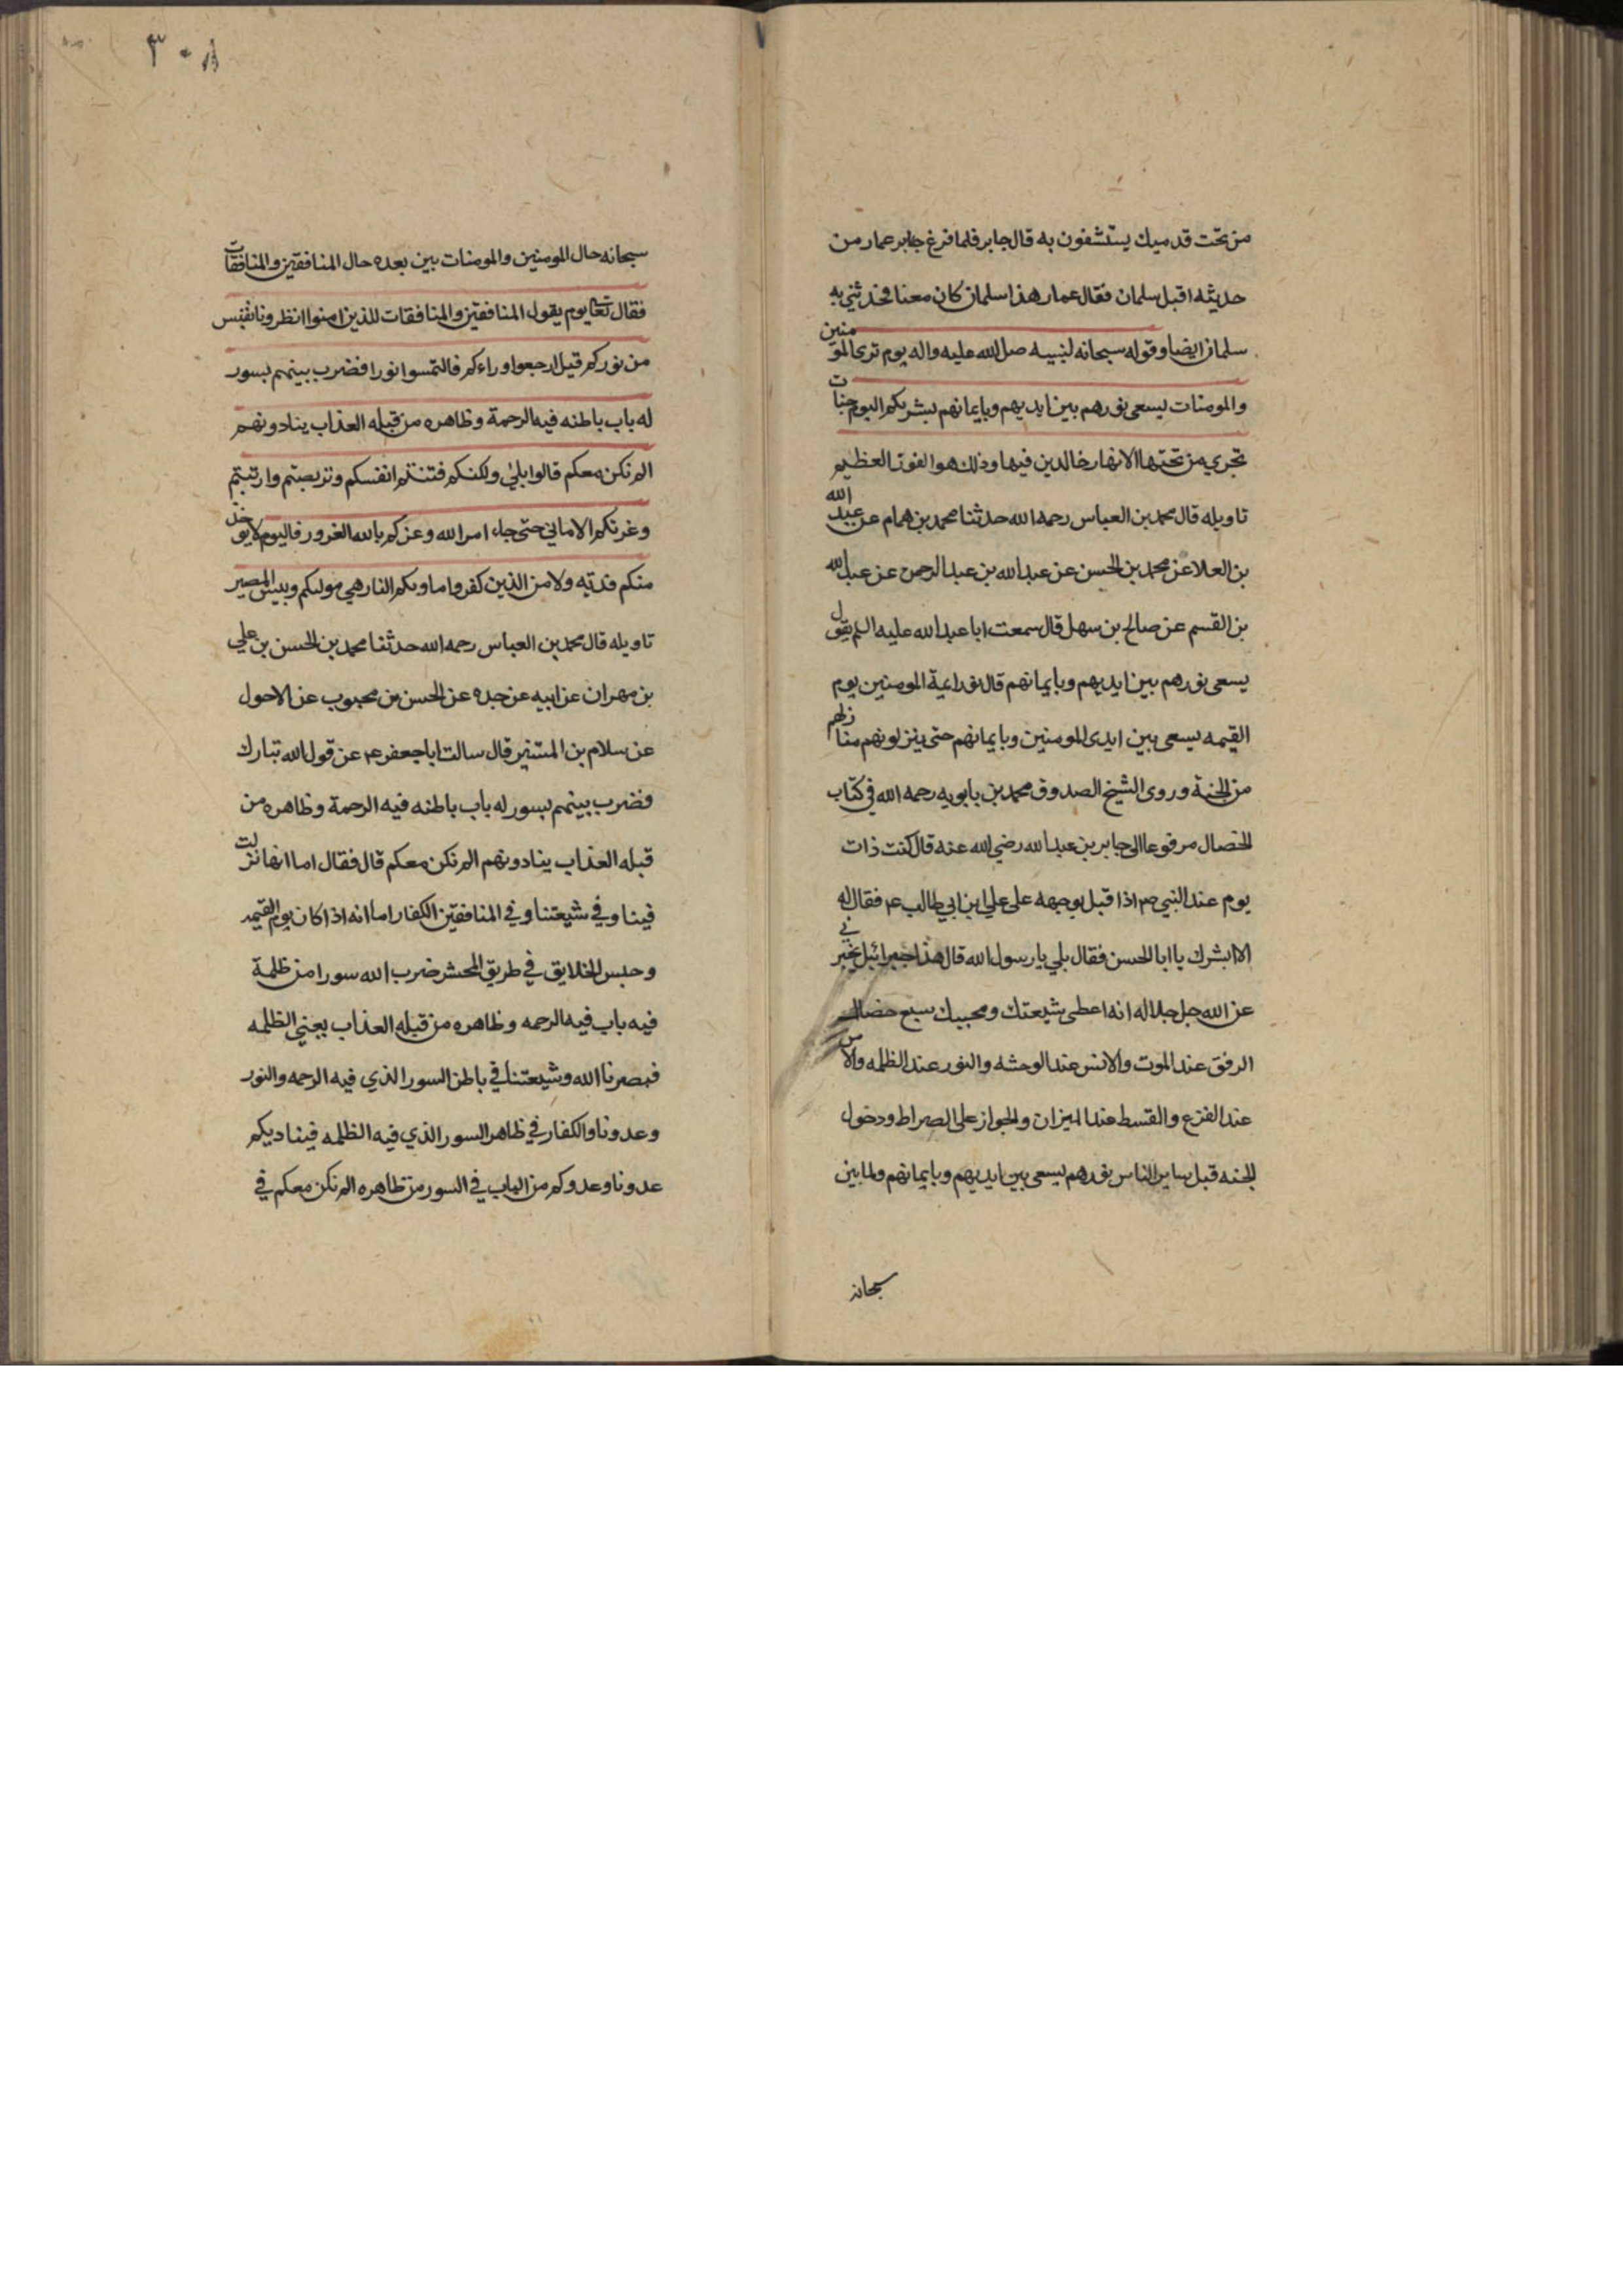 من تحت قدميك يستشفون به قال جابر فلما فرغ جابر عمار من
حديثه اقبل سلمان فقال عمار هذا سلمان كان معنا فحدثني به
سلمان ايضا وقوله سبحانه لنبيه صلى الله عليه واله يوم ترى المومنين
والمومنات يسعى نورهم بين ايديهم وبايمانهم بشريكم اليوم جنات
تجري من تحتها الانهار خالدين فيها وذلك هو الفوز العظيم
تاويله قال محمد بن العباس رحمه الله حدثنا محمد بن همام عن عبد الله
بن العلا عن محمد بن الحسن عن عبد الله بن عبد الرحمن عن عبد الله
بن القسم عن صالح بن سهل قال سمعت ابا عبد الله عليه السلم يقول
يسعى نورهم بين ايديهم وبايمانهم قال نور ايمة المومنين يوم
القيمه يسعى بين ايدي المومنين وبايمانهم حتى ينزلونهم منازلهم
من الجنة وروى الشيخ الصدوق محمد بن بابويه رحمه الله في كتاب
الخصال مرفوعا الى جابر بن عبد الله رضي الله عنه قال كنت ذات
يوم عند النبي ص اذا قبل بوجهه على علي ابن ابي طالب ع فقال له
الا ابشرك يا ابا الحسن فقال بلي يا رسول الله قال هذا جبرائيل يخبرني
عن الله جل جلاله انه اعطى شيعتك ومحبيك سبع خصال
الرفق عند الموت والانس عند الوحشه والنور عند الظلمه والامن
عند الفزع والقسط عند الميزان والجواز على الصراط ودخول
الجنه قبل ساير الناس نورهم يسعى بين ايديهم وبايمانهم ولما بين
سبحانه
٣٠٨
سبحانه حال المومنين والمومنات بين بعده حال المنافقين والمنافقات
فقال تعا يوم يقول المنافقين والمنافقات للذين امنوا انظرونا نقتبس
من نوركم قيل ارجعوا وراءكم فالتمسوا نورا فضرب بينهم بسور
له باب باطنه فيه الرحمة وظاهره من قبله العذاب ينادونهم
الم نكن معكم قالوا بلى ولكنكم فتنتم انفسكم وتربصتم وارتبتم
وغرتكم الاماني حتى جاء امر الله وغركم بالله الغرور فاليوم لا يوخذ
منكم فدية ولا من الذين كفروا ماويكم النار هي موليكم وبيس المصير
تاويله قال محمد بن العباس رحمه الله حدثنا محمد بن الحسن بن علي
بن مهران عن ابيه عن جده عن الحسن بن محبوب عن الاحول
عن سلام بن المستنير قال سالت ابا جعفر ع عن قول الله تبارك
فضرب بينهم بسور له باب باطنه فيه الرحمة وظاهره من
قبله العذاب ينادونهم الم نكن معكم قال فقال اما انها نزلت
فينا وفي شيعتنا وفي المنافقين الكفار اما انه اذا كان يوم القيمه
وحبس الخلايق في طريق المحشر ضرب الله سورا من ظلمة
فيه باب فيه الرحمه وظاهره من قبله العذاب يعني الظلمه
فيصرنا الله وشيعتنا في باطن السور الذي فيه الرحمه والنور
وعدونا والكفار في ظاهر السور الذي فيه الظلمه فيناديكم
عدونا وعدوكم من الباب في السور من ظاهره الم نكن معكم في